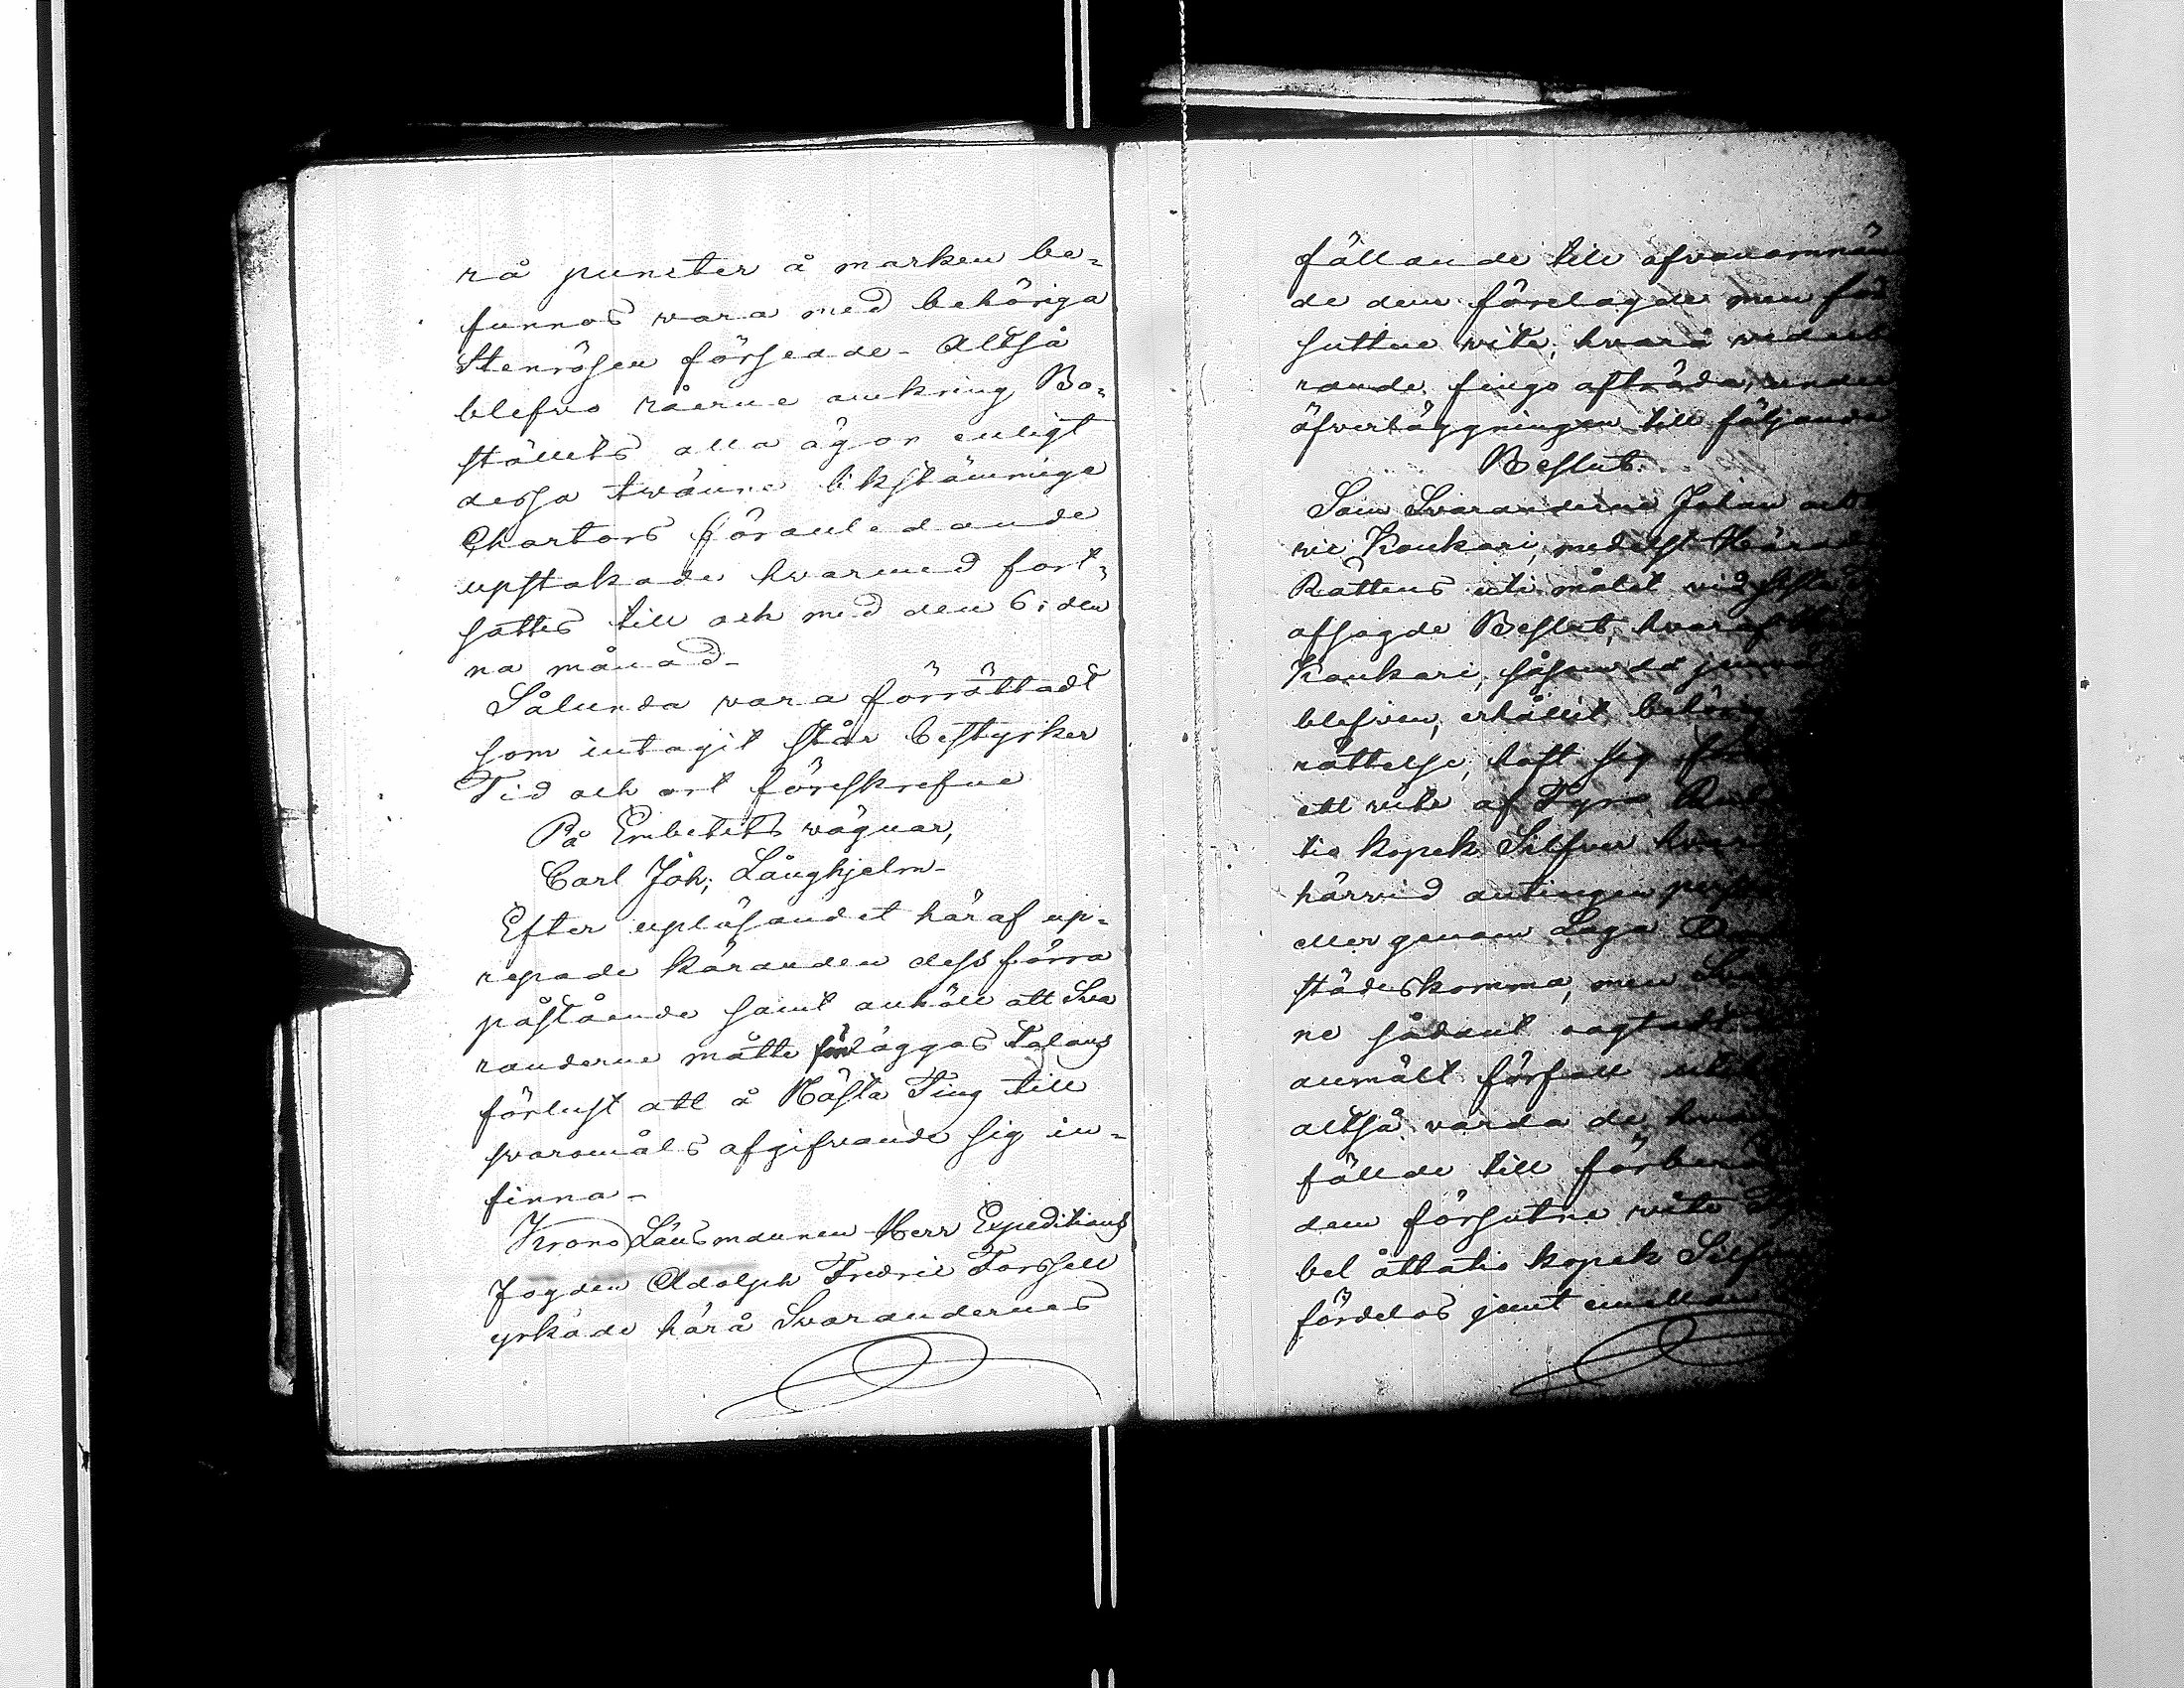 rå puncter å marken be-
funnos vara med behöriga
Stenrösen försedde. Altså
blefvo råerne omkring Bo-
ställets alla ägor enligt
dessa tvänne likstämmige
Chartors föranledande
upstakade hvarmed fort-
sattes till och med den 6: den
na månad.
Sålunda vara förrättadt
som intagit står bestyrker
Tid och ort förskrefne
På Embetets vägnar,
Carl Joh: Långhjelm.
Efter upläsandet häraf up-
repade käranden dess förra
påstående samt anhöll att Sva
randerne måtte föreläggas talans
förlust att å Nästa Ting till
svaromåls afgifvande sig in-
finna.
Krono Länsmannen Herr Expeditions
fogden Adolph Fredric Forssell
yrkade härå Svarandernes
fällande till ofvanomnän
de dem förelagde men för
suttne vite, hvarå vederbö
rande fingo afträda, under
öfverläggningen till följande
Beslut.
Som Svaranderne Johan och
ric Koukari, medelst Härads
Rättens uti målet vid sista
afsagde Beslut, hvaraf
Koukari, såsom
blifven, erhållit behörig
rättelse, haft sig
ett vite af Fyra Rub
tio kopek Silfver hvar
härvid antingen pers
eller genom Laga
städeskomma, men
ne sådant oagtadt
anmält förfall
altså varda de
fällde till
dem försutne vite
bel åttatio kopek Silf
fördelas jemt emellan